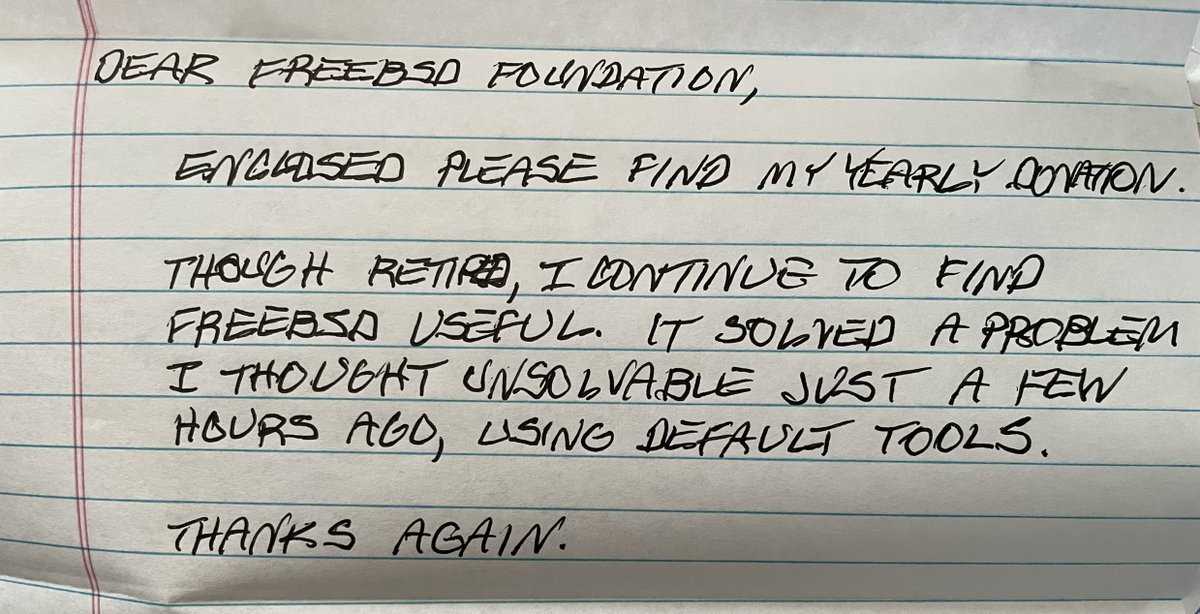 DEAR FREEBSD FOUNDATION,
ENCLOSED PLEASE FIND MY YEARLY DONATION.
THOUGH RETIRED, I CONTINUE TO FIND
FREEBSD USEFUL. IT SOLVED A PROBLEM
I THOUGHT UNSOLVABLE JUST A FEW
HOURS AGO, USING DEFAULT TOOLS.
THANKS AGAIN.